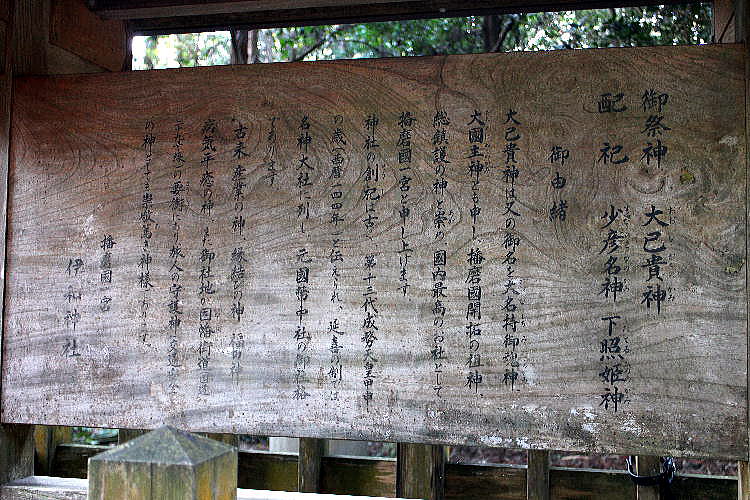 御祭神 大己貴神
配祀 少彦名神 下照姫神
御由緒
大己貴神は又の御名を大名持御魂神、
大國主神とも申し播磨國開拓の祖神、
総鎮護の神と崇め國内最高のお社として
播磨國一宮と申し上げます。
神社の創祀は古く、第十三代成務天皇甲申
の歳(西暦一四四年)と伝えられ、延喜の制には
名神大社に列し、元國幣中社の御社格
であります
古来、産業の神、縁結びの神、福の神
病気平癒の神、また御社地が因幡街道
の要衝により旅人の守護神
の神としても崇敬篤き神様であります。
播磨國一宮
伊和神社